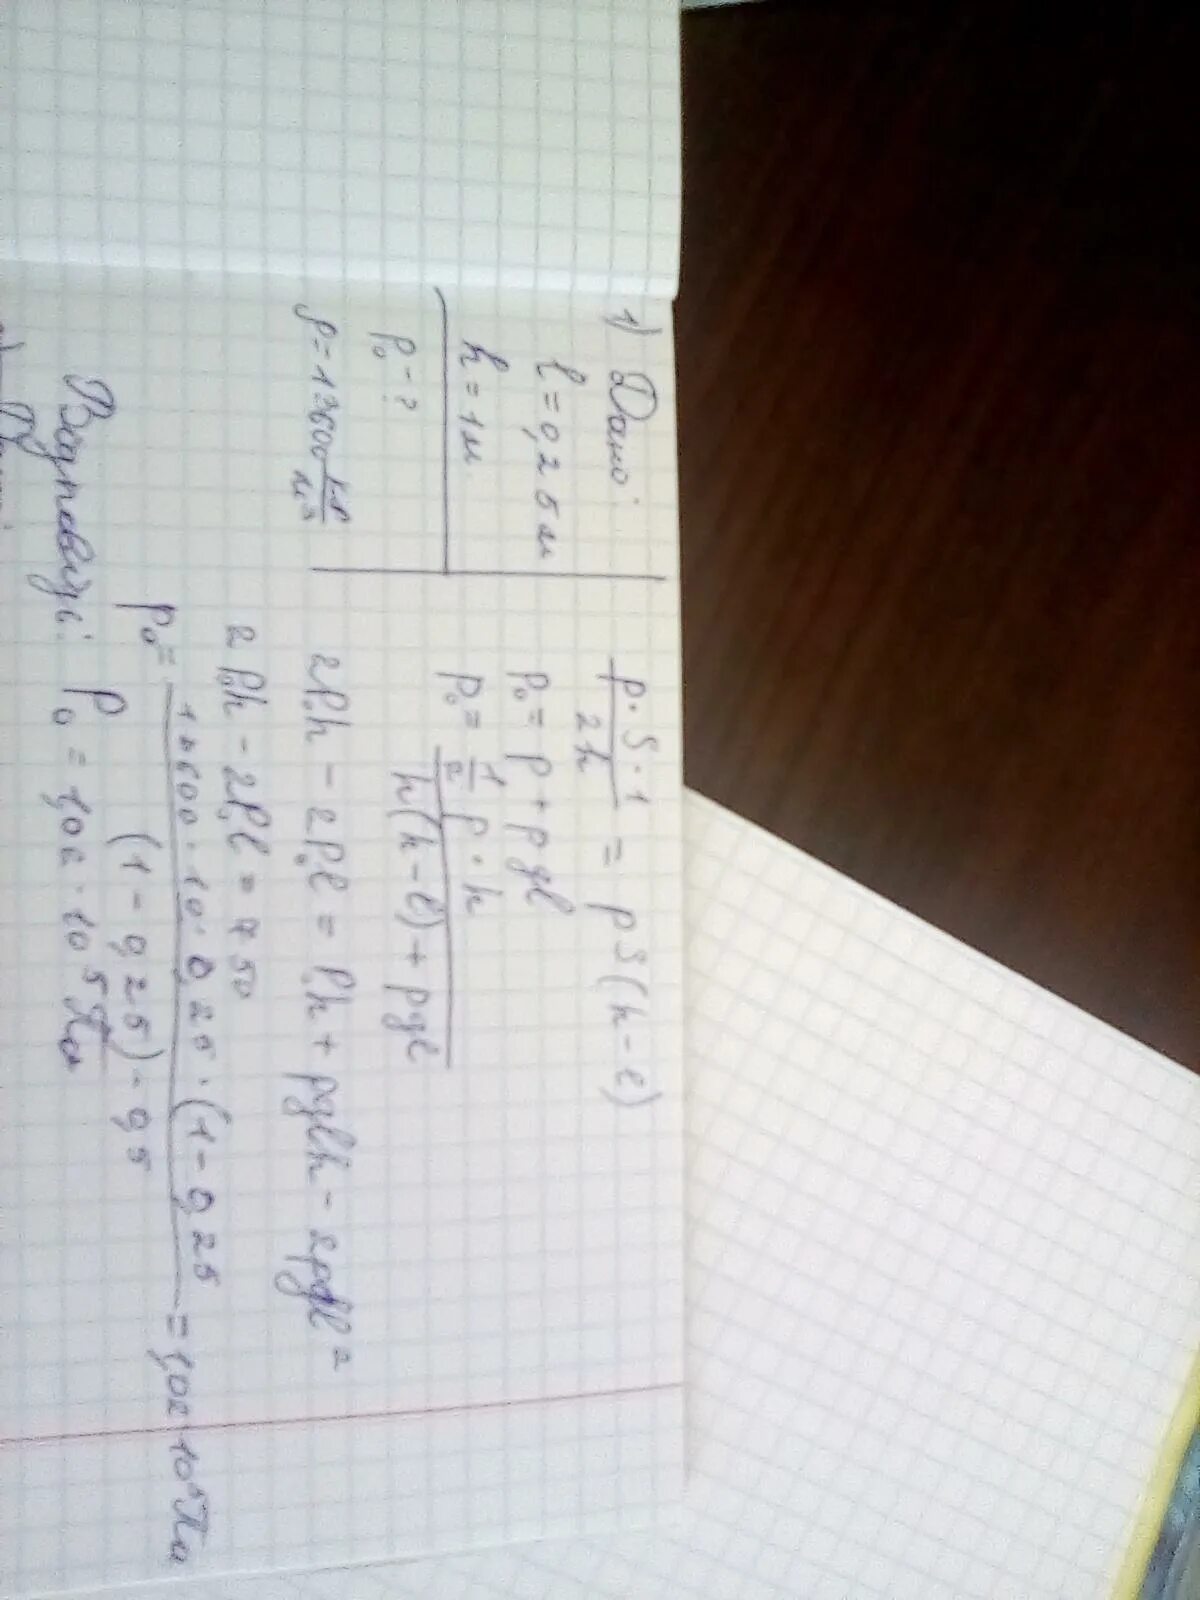 1) Дано:
l = 0,25 м
h = 1 м
P₀ - ?
ρ = 13600 кг/м³
p · S · 1 / 2h = p S (h - l)
P₀ = P + ρgl
P₀ = 1/2 p · h / h(h - l) + ρgl
2P₀h - 2P₀l = P₀h + ρglh - 2ρgl²
2P₀h - 2P₀l = 750
P₀ = 13600 · 10 · 0,25 · (1 - 0,25 / (1 - 0,25) - 0,5 = 1,02 · 10⁵ Па
Відповідь: P₀ = 1,02 · 10⁵ Па